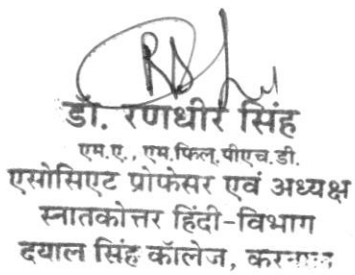 डॉ. रणधीर सिंह
एम.ए., एम.फिल्.पीएच.डी.
एसोसिएट प्रोफेसर एवं अध्यक्ष
स्नातकोत्तर हिंदी-विभाग
दयाल सिंह कॉलेज, करनाल